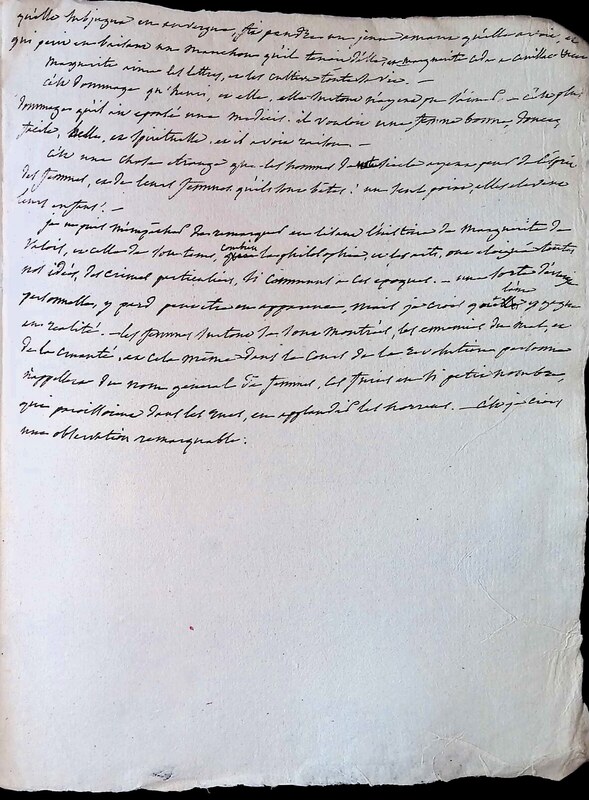 qu'elle subjugua en auvergne, fit pendre un jeune amant qu'elle avoit, et
qui périt en baisant un manchon qu'il tenoit d'elle. marguerite
marguerite aima les lettres, et les cultiva toute sa vie. –
c'est dommage qu'henri, et elle, elle surtout n'ayent pu s'aimer. – c'est plus
dommage qu'il ait épousé une médicis. il vouloit une femme bonne, douce,
facile, belle, et spirituelle, et il avoit raison. –
c'est une chose étrange que les hommes de siècle ayent peur de l'esprit
des femmes, et de leurs femmes. qu'ils sont bêtes! un seul point, elles élèvent
leurs enfans! –
je ne puis m'empêcher de remarquer en lisant l'histoire de marguerite de
Valois, et celle de son tems, combien la philosophie, et les arts, ont éloigné toutes
nos idées, des crimes particuliers, si communs à ces époques. – une sorte d'énergie
personnelle, y perd peut être en apparence, mais je crois qu'elle y gagne
en réalité. – les femmes surtout se sont montrées, les ennemies du mal, et
de la cruauté, et cela même dans le cours de la révolution personne
n'appellera du nom général de femmes, les furies en si petit nombre,
qui paroissoient dans les rues, en applaudir les horreurs. – c'est je crois
une observation remarquable.